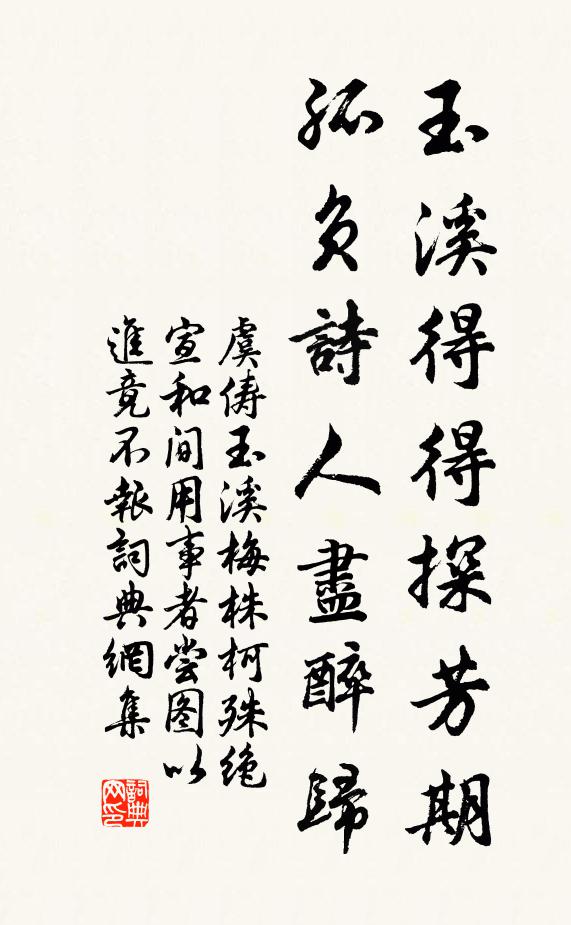 玉溪得得探芳期
孤负詩人盡醉歸
虞俦玉溪梅株柯殊绝
宣和间用事者尝图以
進竟不報詞典網集
詞典网印